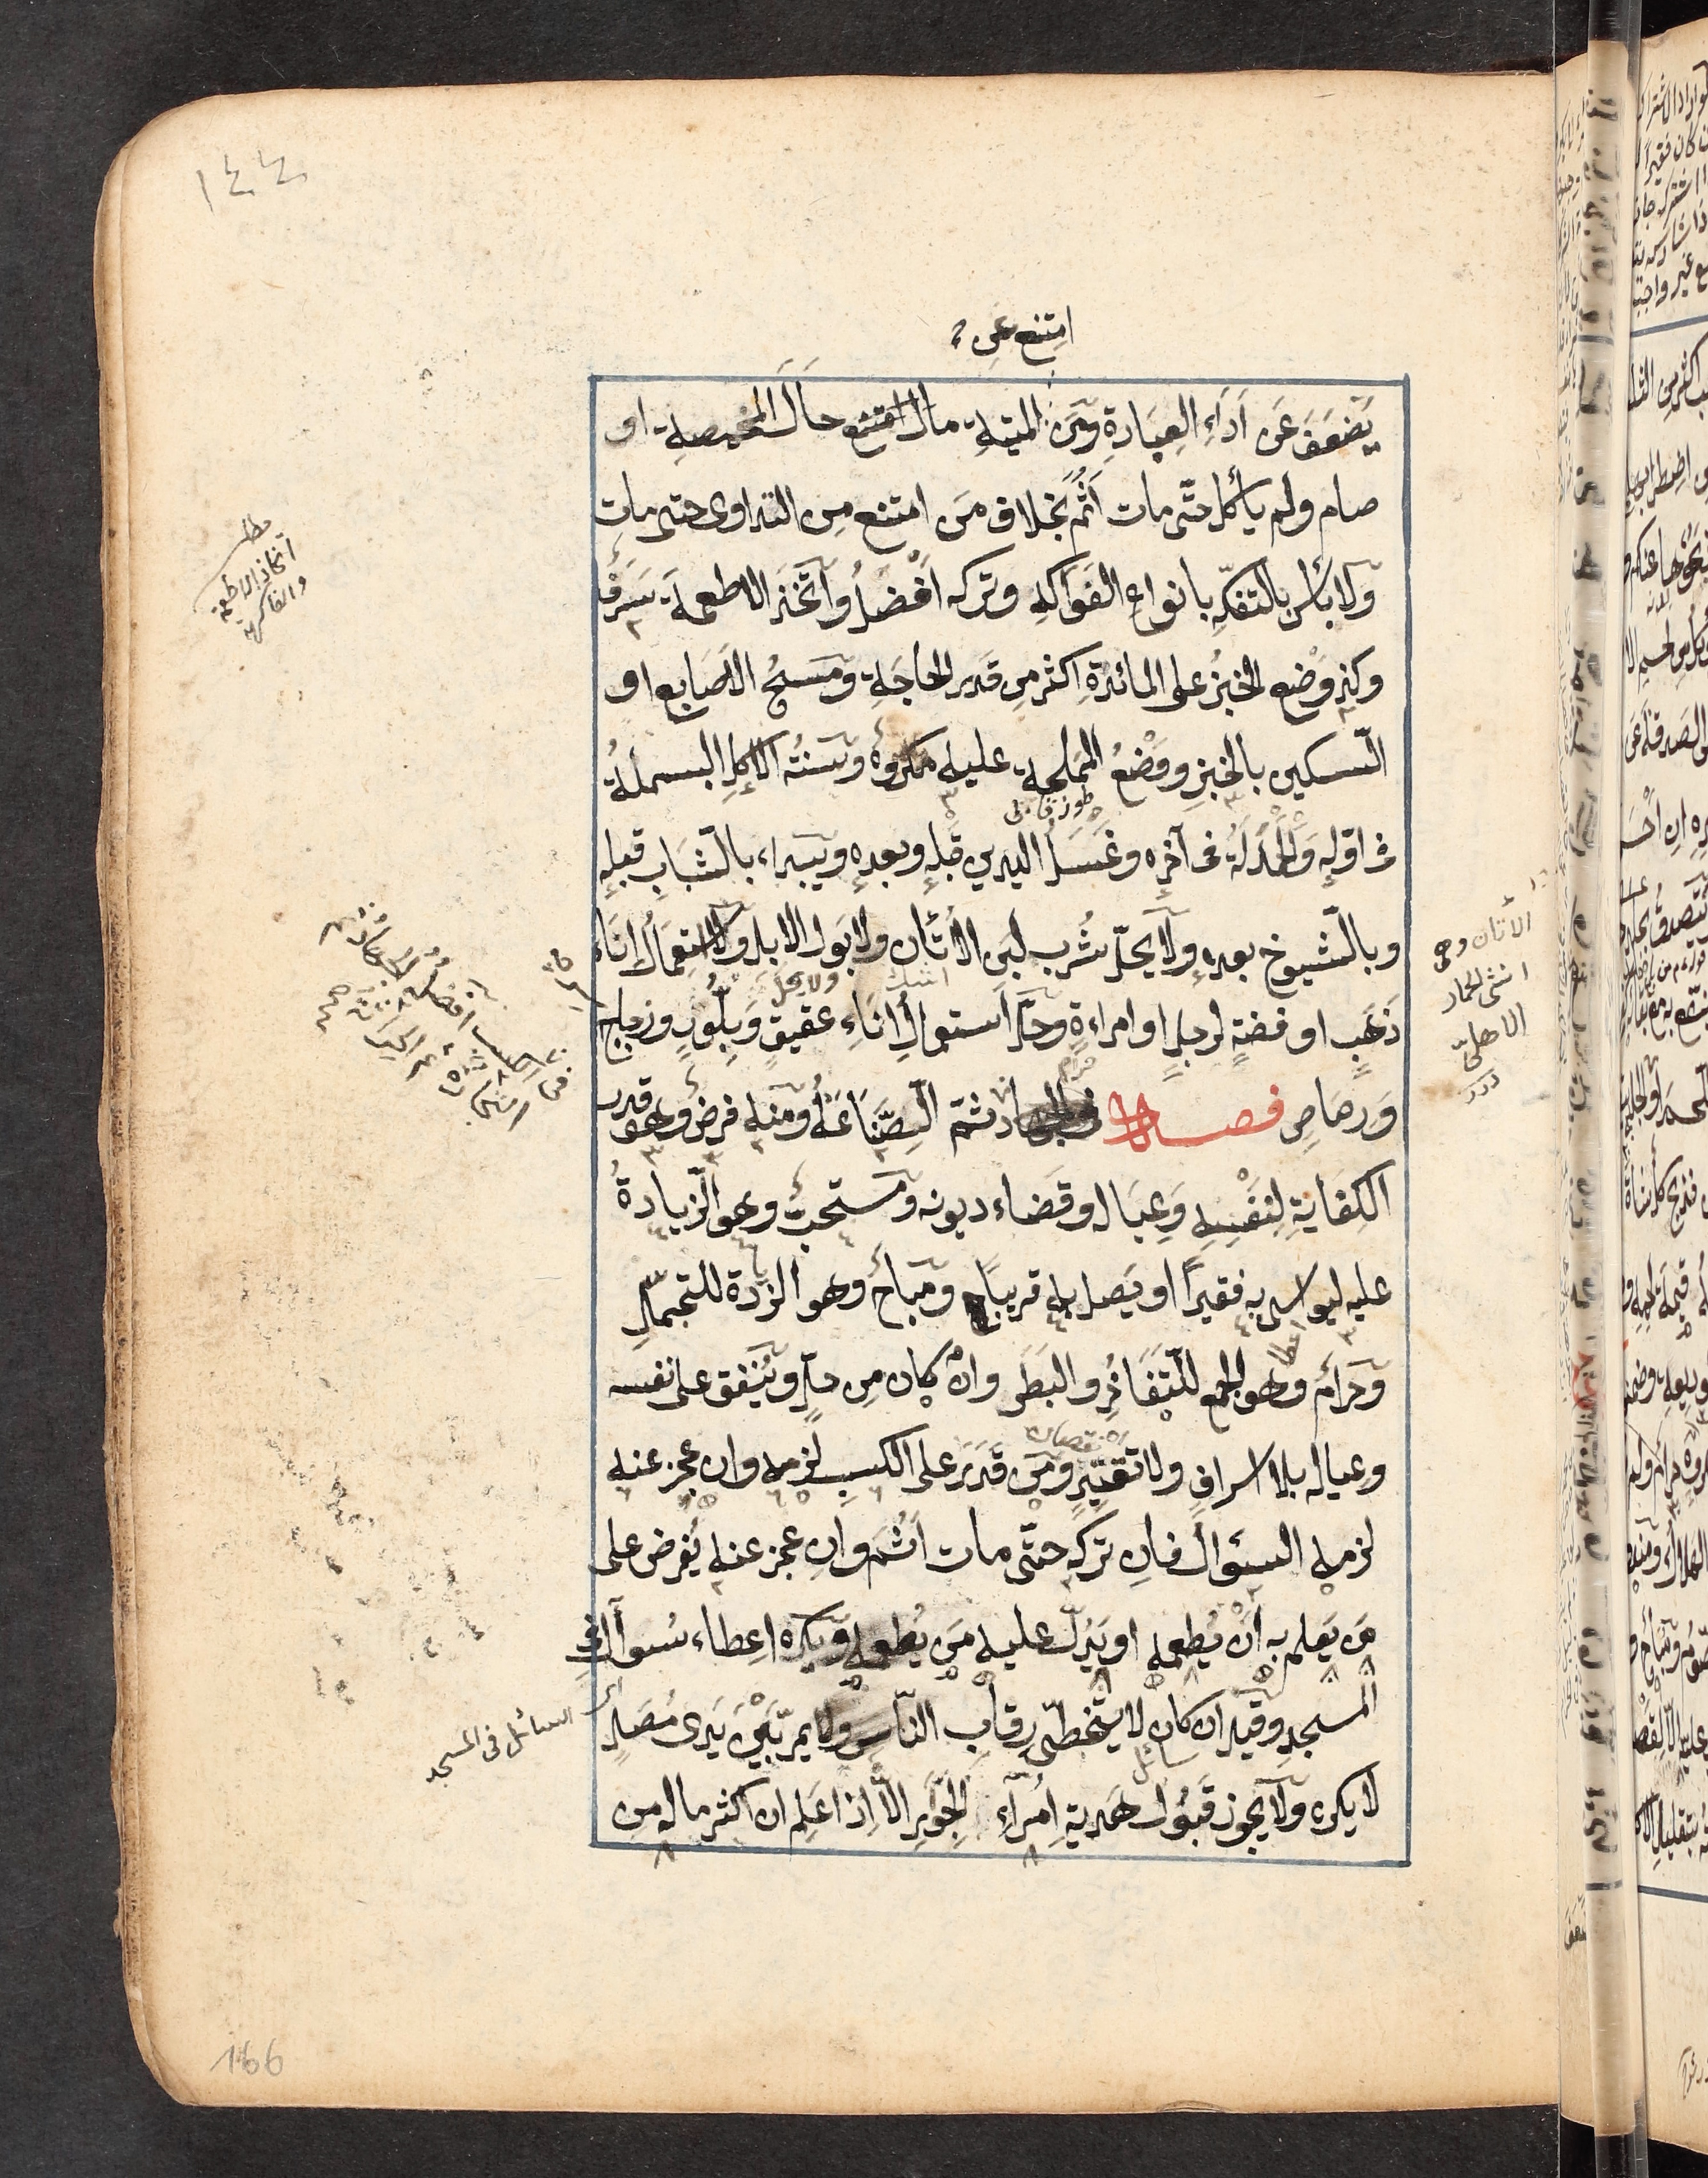 ١٤٤
امتنع عن
يَضعَفَ عَن اَدَاءِ العِبَادَةِ ومَن المَيتةِ مال امتنع حَالَ المخمصةِ او
صام ولم يأكل حتّى مات اَثُمَ بخلاف مَن امتنع مِن التداوى حتى مات
ولا بأس بالتفكّهِ بانواع الفَوَاكهِ وتركه اَفْضَلُ واَتّخَذ الاطعمة سَرَفٌ
وكذ وَضْع الخبزِ على المائدَةِ اكثر مِن قَدرِ الحاجَةِ ومَسحُ الاَصَابع او
السّكين بالخبزِ ووَضْعُ المَملحة عليه مكروهٌ وسنّتُه الاكلِ البسملةُ
فى اوّلِه وَالحَمْدَلَةُ فى آخرِه وغَسلُ اليدين قبلِه وبعدِه ويبداء بالشّبابِ قبلِه
وبالشّيوخ بعده ولا يحلّ شُرب لبَنِ الاُتانِ ولا بَولِ الابلِ ولا استعمالُ اِنَاء
ذَهَبٍ او فضةٍ لرجلٍ او امراءةٍ وحلّ استعمالُ اِنَاءِ عقيقٍ وَبِلّورٍ وزجاجٍ
وَرصَاصٍ فصـل ثم الصِّنَاعَةُ ومنه فرض وهو قدر
الكِفايَةِ لِنَفْسِهِ وَعِيَاله وقَضاء ديونه ومستحبّ وهو الزّيادةُ
عليه ليواسى به فقيراً او يَصل به قريباً ومُباح وهو الزّدة للتجمّلِ
وحرام وهو الجمع للتّفاخُرِ والبَطَرِ وانْ كان مِن حلٍّ ويُنفِق على نفسه
وعياله بلا اسرافٍ ولا تقتِيرٍ ومَن قَدَرَ على الكسبِ لزمه وان عجز عنه
لزمه السئوال فان تركه حتّى مات اَثُمَ وان عجز عنه يُفرض على
مَن يَعلم به اَنْ يُطعِمه او يَدُلّ عليه مَن يُطعمه ويكره اعطاء سُوآلِ فى
المسجد وقيل ان كان لا يتخطّى رِقابَ النّاسِ ولا يمرّ بَيْنَ يَدى مُصَلٍّ
لا يكره ولا يجوز قَبُول هَديةِ اُمَرآءِ الجَوْرِ الاّ اِذا عَلِم ان اكثر ماله مِن
مط
اتخاذ الاطعمة
والفاكهة
الاتان وهى
انثى الحمار
الاهلىّ
درر
ولا يحل
نقصان
سائل
السائل فى المسجد
166